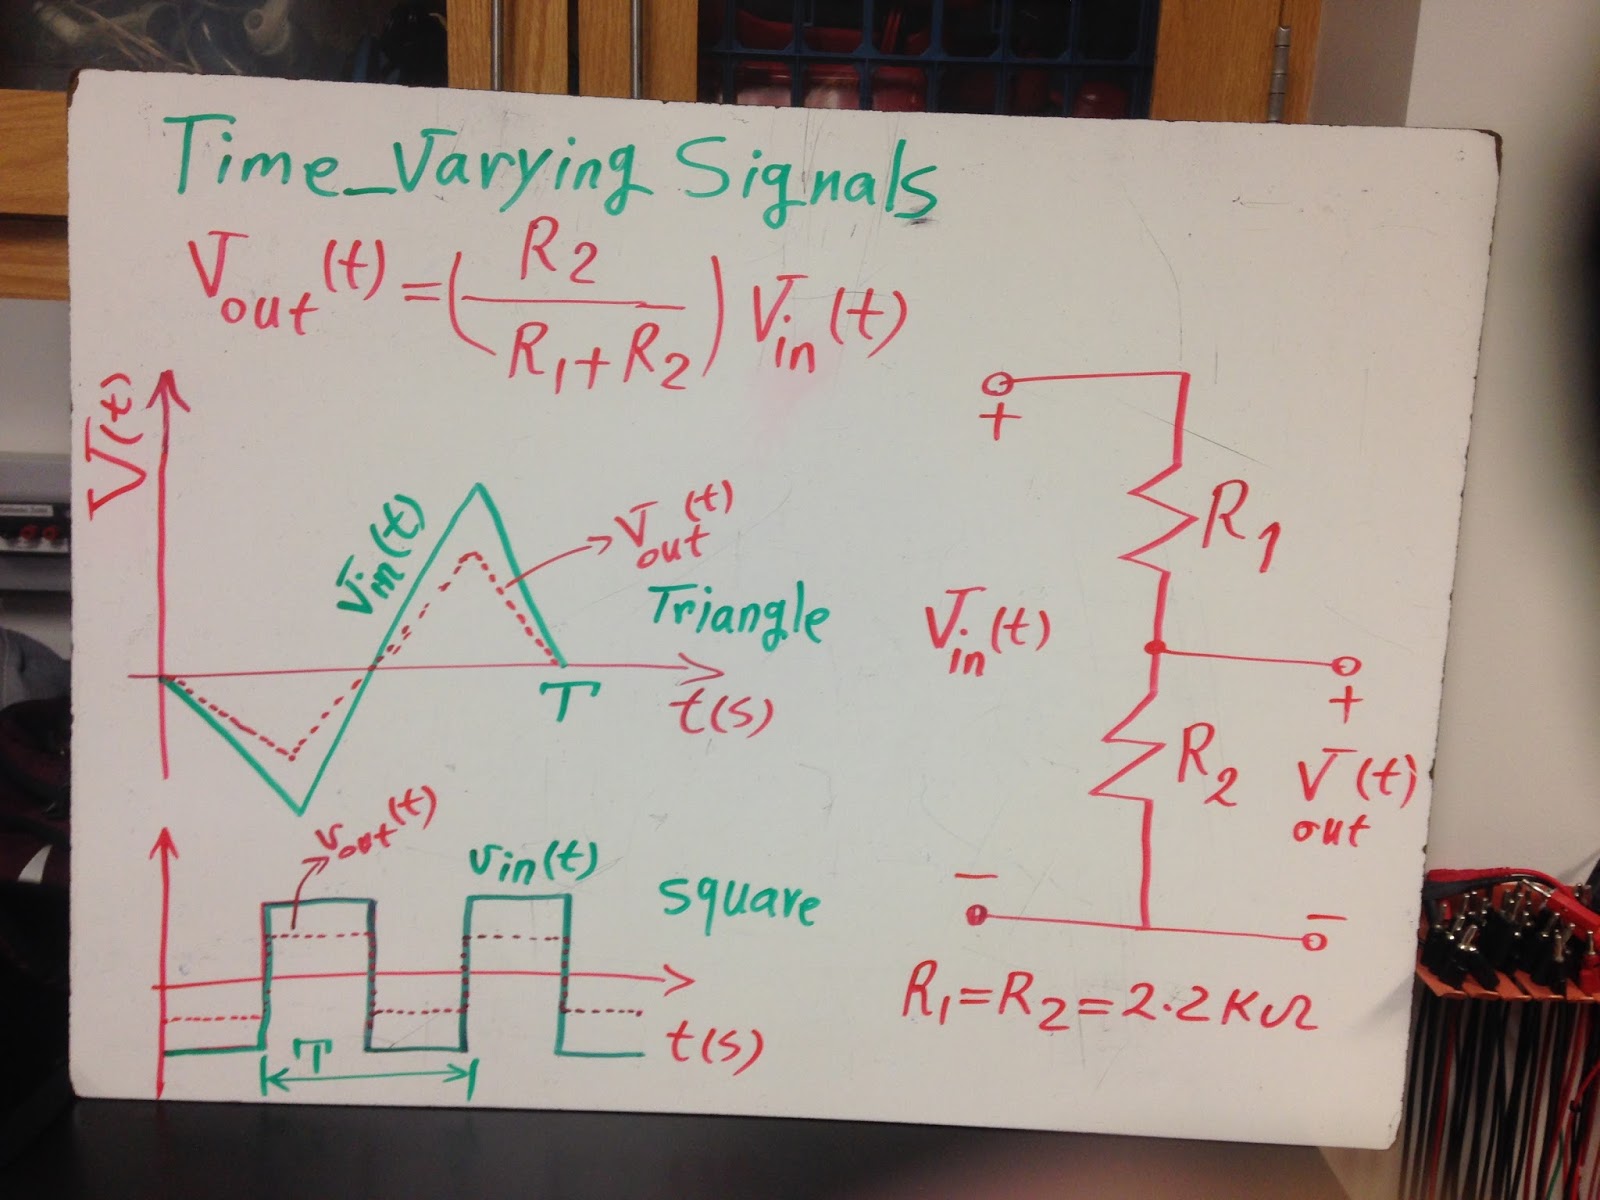 Time_Varying Signals
Vout(t) = (R2 / R1+R2) Vin(t)
V(t)
Vin(t)
Vout(t)
Triangle
T
t(s)
Vout(t)
Vin(t)
square
T
t(s)
+
R1
Vin(t)
+
R2
V(t)
out
−
−
R1=R2=2.2KΩ